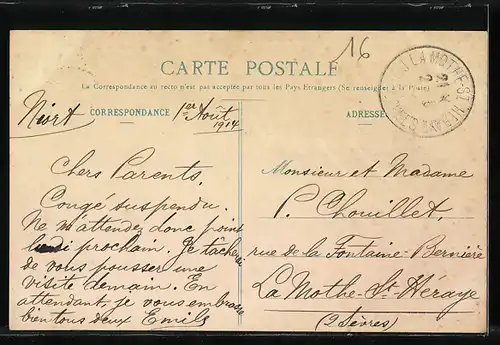 16
CARTE POSTALE
La Correspondance au recto n'est pas acceptée par tous les Pays Étrangers (Se renseigner à la Poste)
CORRESPONDANCE
ADRESSE
Niort 1er Août
1914
Chers Parents,
Congé suspendu.
Ne m'attendez donc point
lundi prochain. Je tâcherai
de vous pousser une
visite demain. En
attendant, je vous embrasse
bien tous deux Emile
LA MOTHE-ST-HÉRAYE
Monsieur et Madame
P. Chouillet,
rue de la Fontaine-Bernière
La Mothe-St-Héraye
(2 Sèvres)